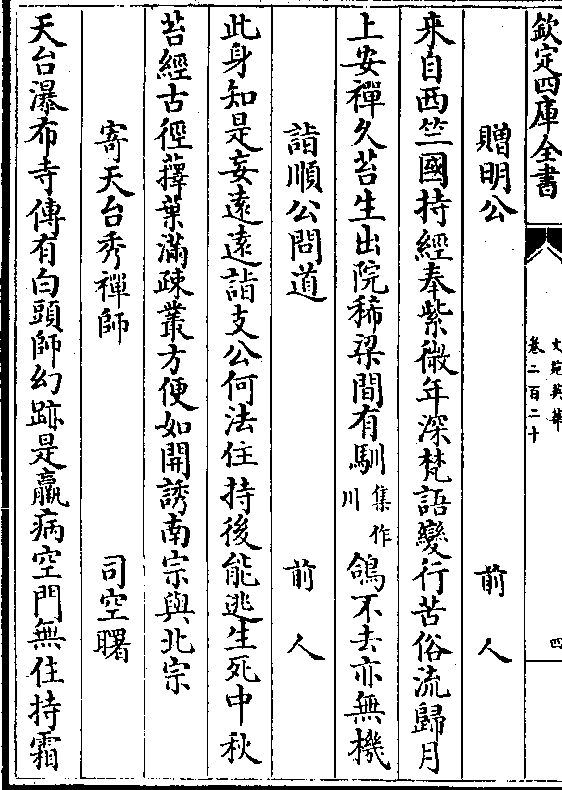 欽定四庫全書
文苑英華
卷二百二十
四
贈明公 前人
來自西竺國持經奉紫微年深梵語變行苦俗流歸月
上安禪久苔生出院稀梁間有馴集作川鴿不去亦無機
詣順公問道 前人
此身知是妄遠遠詣支公何法住持後能逃生死中秋
苔經古徑蘀葉滿疎叢方便如開誘南宗與北宗
寄天台秀禪師 司空曙
天台瀑布寺傳有白頭師幻跡是羸病空門無住持霜